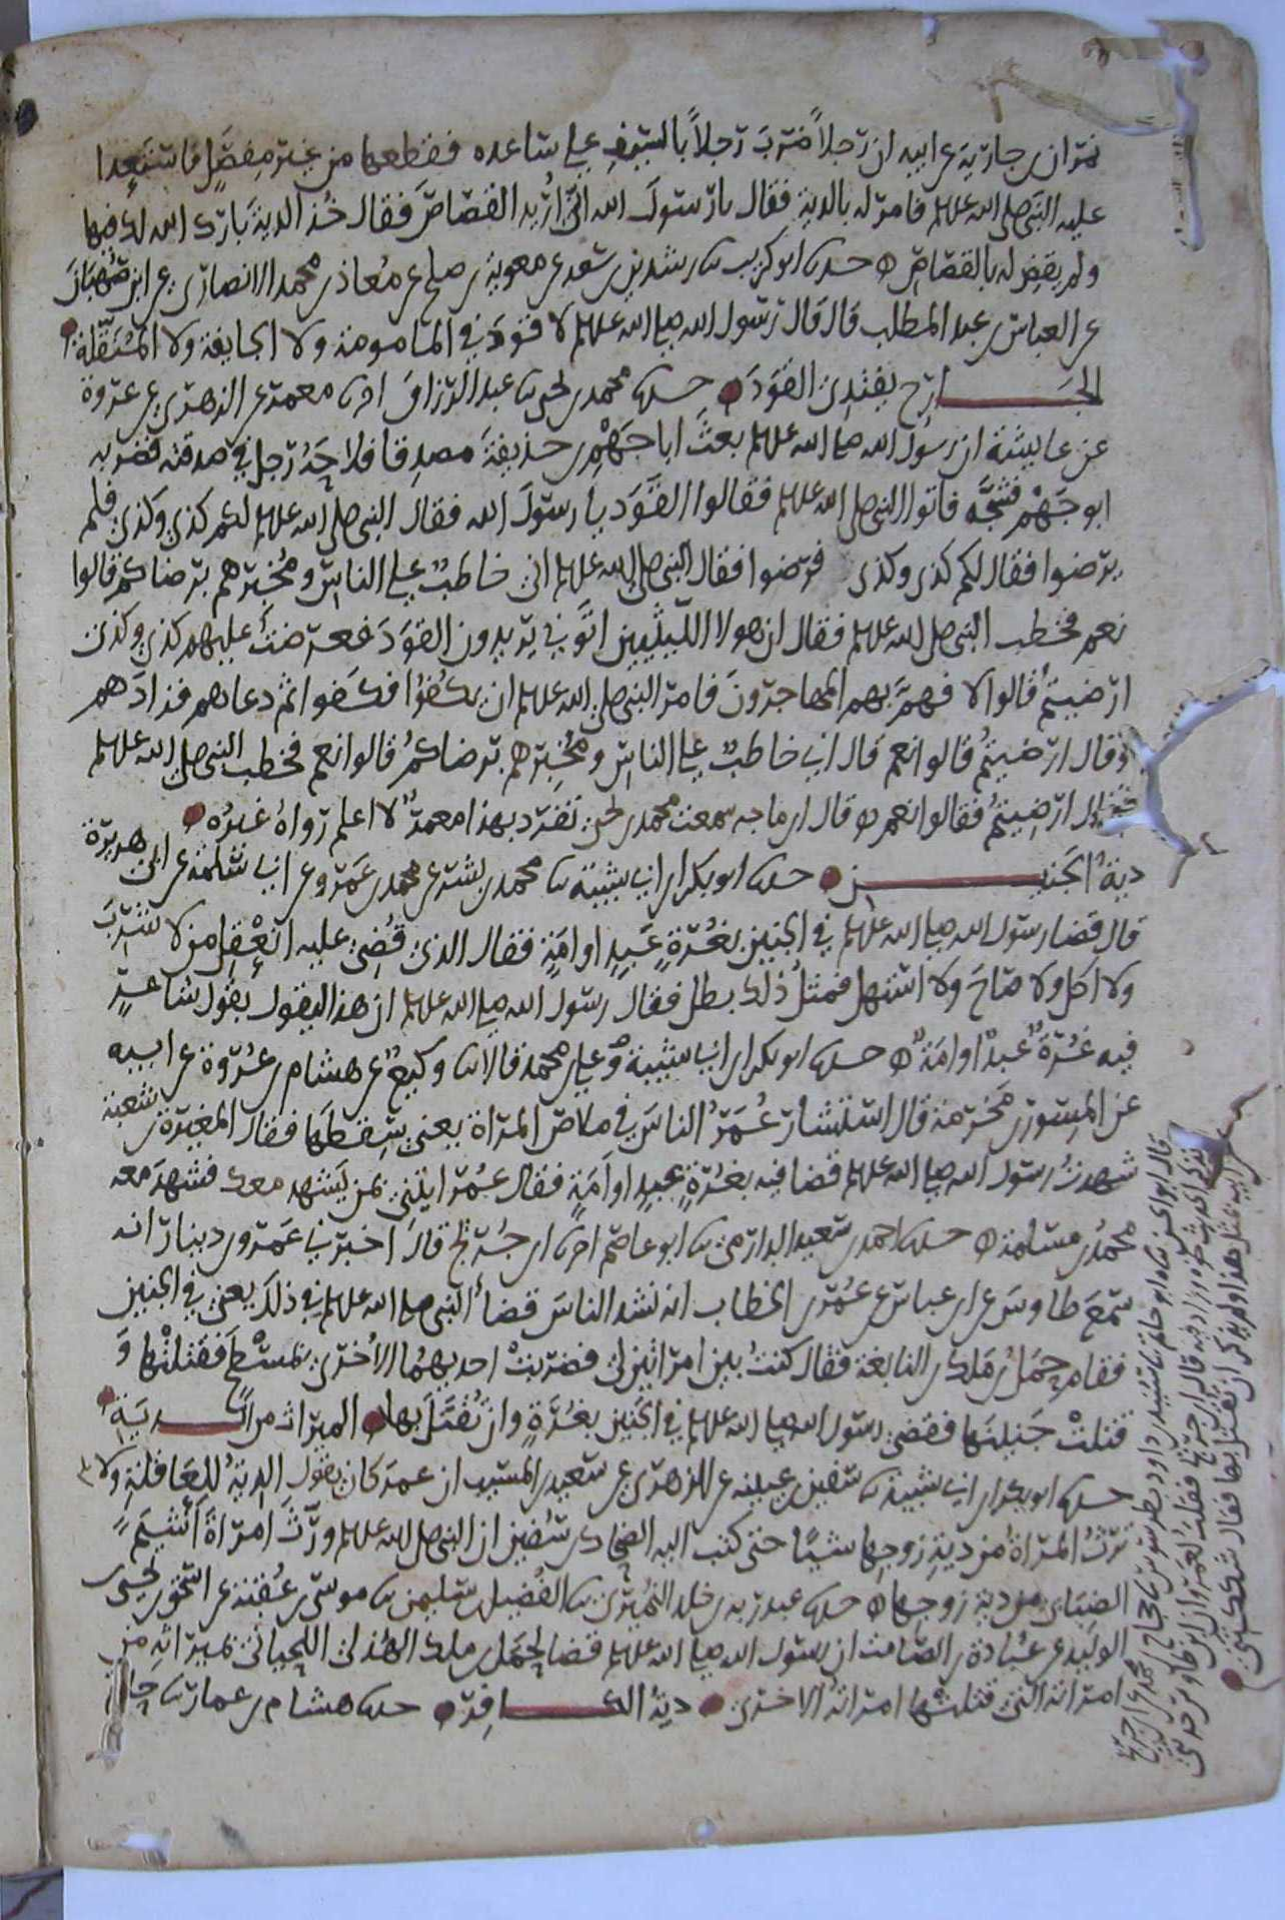 نمران بن جارية عن ابيه ان رجلاً ضربَ رجلاً بالسيف على ساعده فقطعها من غير مِفصَلٍ فاستعدا
عليه النبي صلى الله عليه وسلم فامر له بالدية فقال يا رسولَ الله انى اُريد القصاصَ فقال خُذ الدية بَارك الله لك فيها
ولم يقضِ له بالقصاصِ ه حدثنا ابو كريب ثنا رشدين بن سعد عن معوية بن صلح عن مُعاذ بن محمد الانصاري عن ابن صُهْبَانَ
عن العباس بن عبد المطلب قال قال رسول الله صلى الله عليه وسلم لا قَوَدَ في المامومة ولا الجايفة ولا المُنَقِّلة
الجـــارح يفتدى القَوَدَ حدثنا محمد بن يحيى ثنا عبد الرزاق اخبرنا معمر عن الزهري عن عروة
عن عايشة ان رسول الله صلى الله عليه وسلم بعثَ ابا جَهْمِ بن حذيفةَ مصدقا فلاجَّهُ رجل في صدقته فضربه
ابو جَهْم فشجَّه فاتوا النبي صلى الله عليه وسلم فقالوا القَوَدَ يا رسولَ الله فقال النبي صلى الله عليه وسلم لكم كذى وكذى فلم
يرضوا فقال لكم كذى وكذى فرضوا فقال النبي صلى الله عليه وسلم انى خاطبٌ على الناسِ ومُخبرهم برضاكم قالوا
نعم فخطب النبي صلى الله عليه وسلم فقال ان هولا الليثيين اتَوني يريدون القوَدَ فعرضتُ عليهم كذى وكذى
ارضيتمُ قالوا لا فهمَّ بهم المهاجرونَ فامر النبي صلى الله عليه وسلم ان يكفوا فكفوا ثم دعاهم فزادَهم
وقال ارضيتمُ قالوا نعم قال انى خاطبٌ على الناسِ ومُخبِرهم برضاكمُ قالوا نعم فخطب النبي صلى الله عليه وسلم
فقال ارضِيتمُ فقالوا نعم ه قال ابن ماجه سمعت محمد بن يحيى تفرد بهذا معمرٌ لا اعلم رواهُ غيرُه
ديةُ الجنيــــن حدثنا ابو بكر ابن ابي شيبة ثنا محمد بن بشر عن محمد بن عَمرو عن ابي سلمة عن ابى هريرة
قال قضا رسول الله صلى الله عليه وسلم في الجنين بغُرّةٍ عَبدٍ او امَةٍ فقال الذى قُضِىَ عليه انَعْقِل من لا شرِبَ
ولا اكل ولا صَاحَ ولا استهل فمثلُ ذلك يطل فقال رسول الله صلى الله عليه وسلم ان هذا ليقول بقول شاعرٍ
فيه غُرّةٌ عبدٌ او امَةٌ ه حدثنا ابو بكر ابن ابي شيبة وعلى بن محمد قالا ثنا وكيعٌ عن هشام بن عُروة عن ابيه
عن المِسور بن مَخرمة قال استشارَ عُمَرُ الناسَ في ملاصِ المرأة يعنى سِقطها فقال المغيرة بن شعبة
شهدتُ رسول الله صلى الله عليه وسلم قضا فيه بغُرةٍ عبدٍ او امَةٍ فقال عُمر ايتني بمن يَشهد معك فشهدَ معه
محمدُ بن مسلمة ه حدثنا احمد بن سعيد الدارمي ثنا ابو عاصم اخبرنا ابن جُريج قال اخبرني عَمرو بن دينار انه
سمعَ طاوسَ عن ابن عباس عن عُمر بن الخطاب انه نشد الناسَ قضاَ النبي صلى الله عليه وسلم في ذلكَ يعنى في الجنين
فقام حَمَلُ بن مَلك بن النابغة فقال كنتُ بين امراتين لى فضربتْ احديهما الاُخرى بمسْطحٍ فقتلتها وَ
قتلتْ جَنينَها فقضى رسول الله صلى الله عليه وسلم في الجَنين بغُرّةٍ وان تُقتَلَ بها الميراث من الـــدية
حدثنا ابو بكر ابن ابي شيبة ثنا سفين بن عيينه عن الزهري عن سعيد بن المسيب ان عمر كان يقول الديةُ للعَاقلةِ ولا
ترثُ المرأةُ من ديةِ زوجها شيًا حتى كتب اليه الضحاك بن سُفين ان النبي صلى الله عليه وسلم ورّثَ امرأةَ اَشيَمَ
الضبابى من دية زوجها ه حدثنا عبد ربه بن خلد النُميرى ثنا الفُضيل بن سليمن ثنا موسى بن عُقبة عن اسحق بن يحيى بن
الوليد عن عُبادة بن الصامت ان رسول الله صلى الله عليه وسلم قضا لحَمَل بن ملك الهُذلي اللِحياني بميراثِهِ من
امراته التى قتلتها امراته الاخرى ديةُ الكــافِر حدثنا هشام بن عمار ثنا حاتم
قال ابو الحسن ثناه ابو حاتم ثنا سنيد بن داود بطرسوس ثنا حجاج بن محمد عن ابن جريج
فذكر الحديث نحوه وزاد فيه قال ابن جريج فقلت لعمرو ان ابن طاوس حدثنى
عن ابيه مثل هذا ولم يذكر ان تقتل بها فقال شككتنى